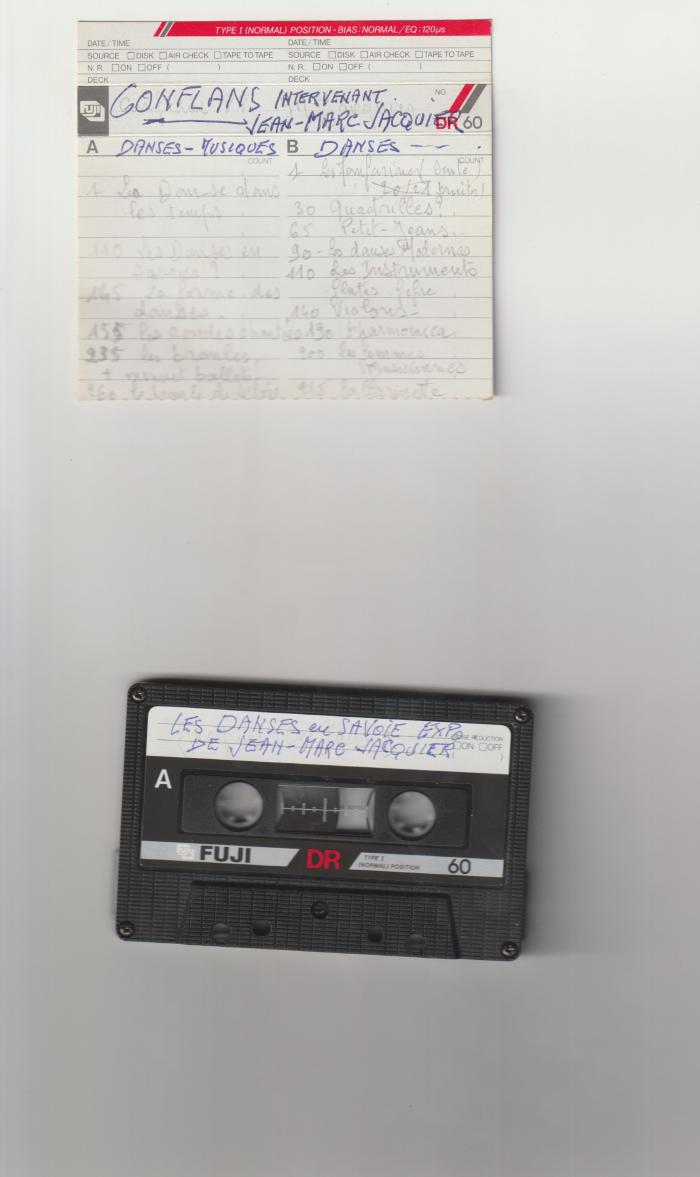 TYPE I (NORMAL) POSITION • BIAS: NORMAL / EQ: 120µs
DATE / TIME DATE / TIME
SOURCE □DISK □AIR CHECK □TAPE TO TAPE SOURCE □DISK □AIR CHECK □TAPE TO TAPE
N. R. □ON □OFF ( ) N. R. □ON □OFF ( )
DECK DECK
FUJI CONFLANS INTERVENANT. NO
JEAN-MARC JACQUIER DR 60
A DANSES-MUSIQUES B DANSES
COUNT COUNT
1 La Danse dans 1 Les
les temps
30 Quadrilles?
65 Petit-Jeans
110 Les Danses en 90 - les danses Modernes
Savoie? 110 Les Instruments
145 la forme des flutes fifre
danses. 140 Violons-
155 les rondes chantées 190 Harmonica
235 les branles, 200 les femmes
+ menuet ballet musiciennes
260 le branle de
LES DANSES en SAVOIE EXPO
DE JEAN-MARC JACQUIER
□ON □OFF
A
FUJI DR TYPE I (NORMAL) POSITION 60